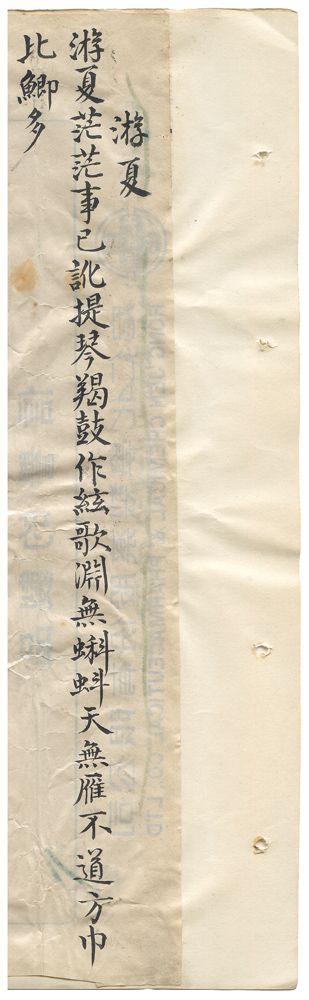 游夏
游夏茫茫事已訛提琴羯鼓作絃歌淵無蝌蚪天無雁不道方巾
比鯽多